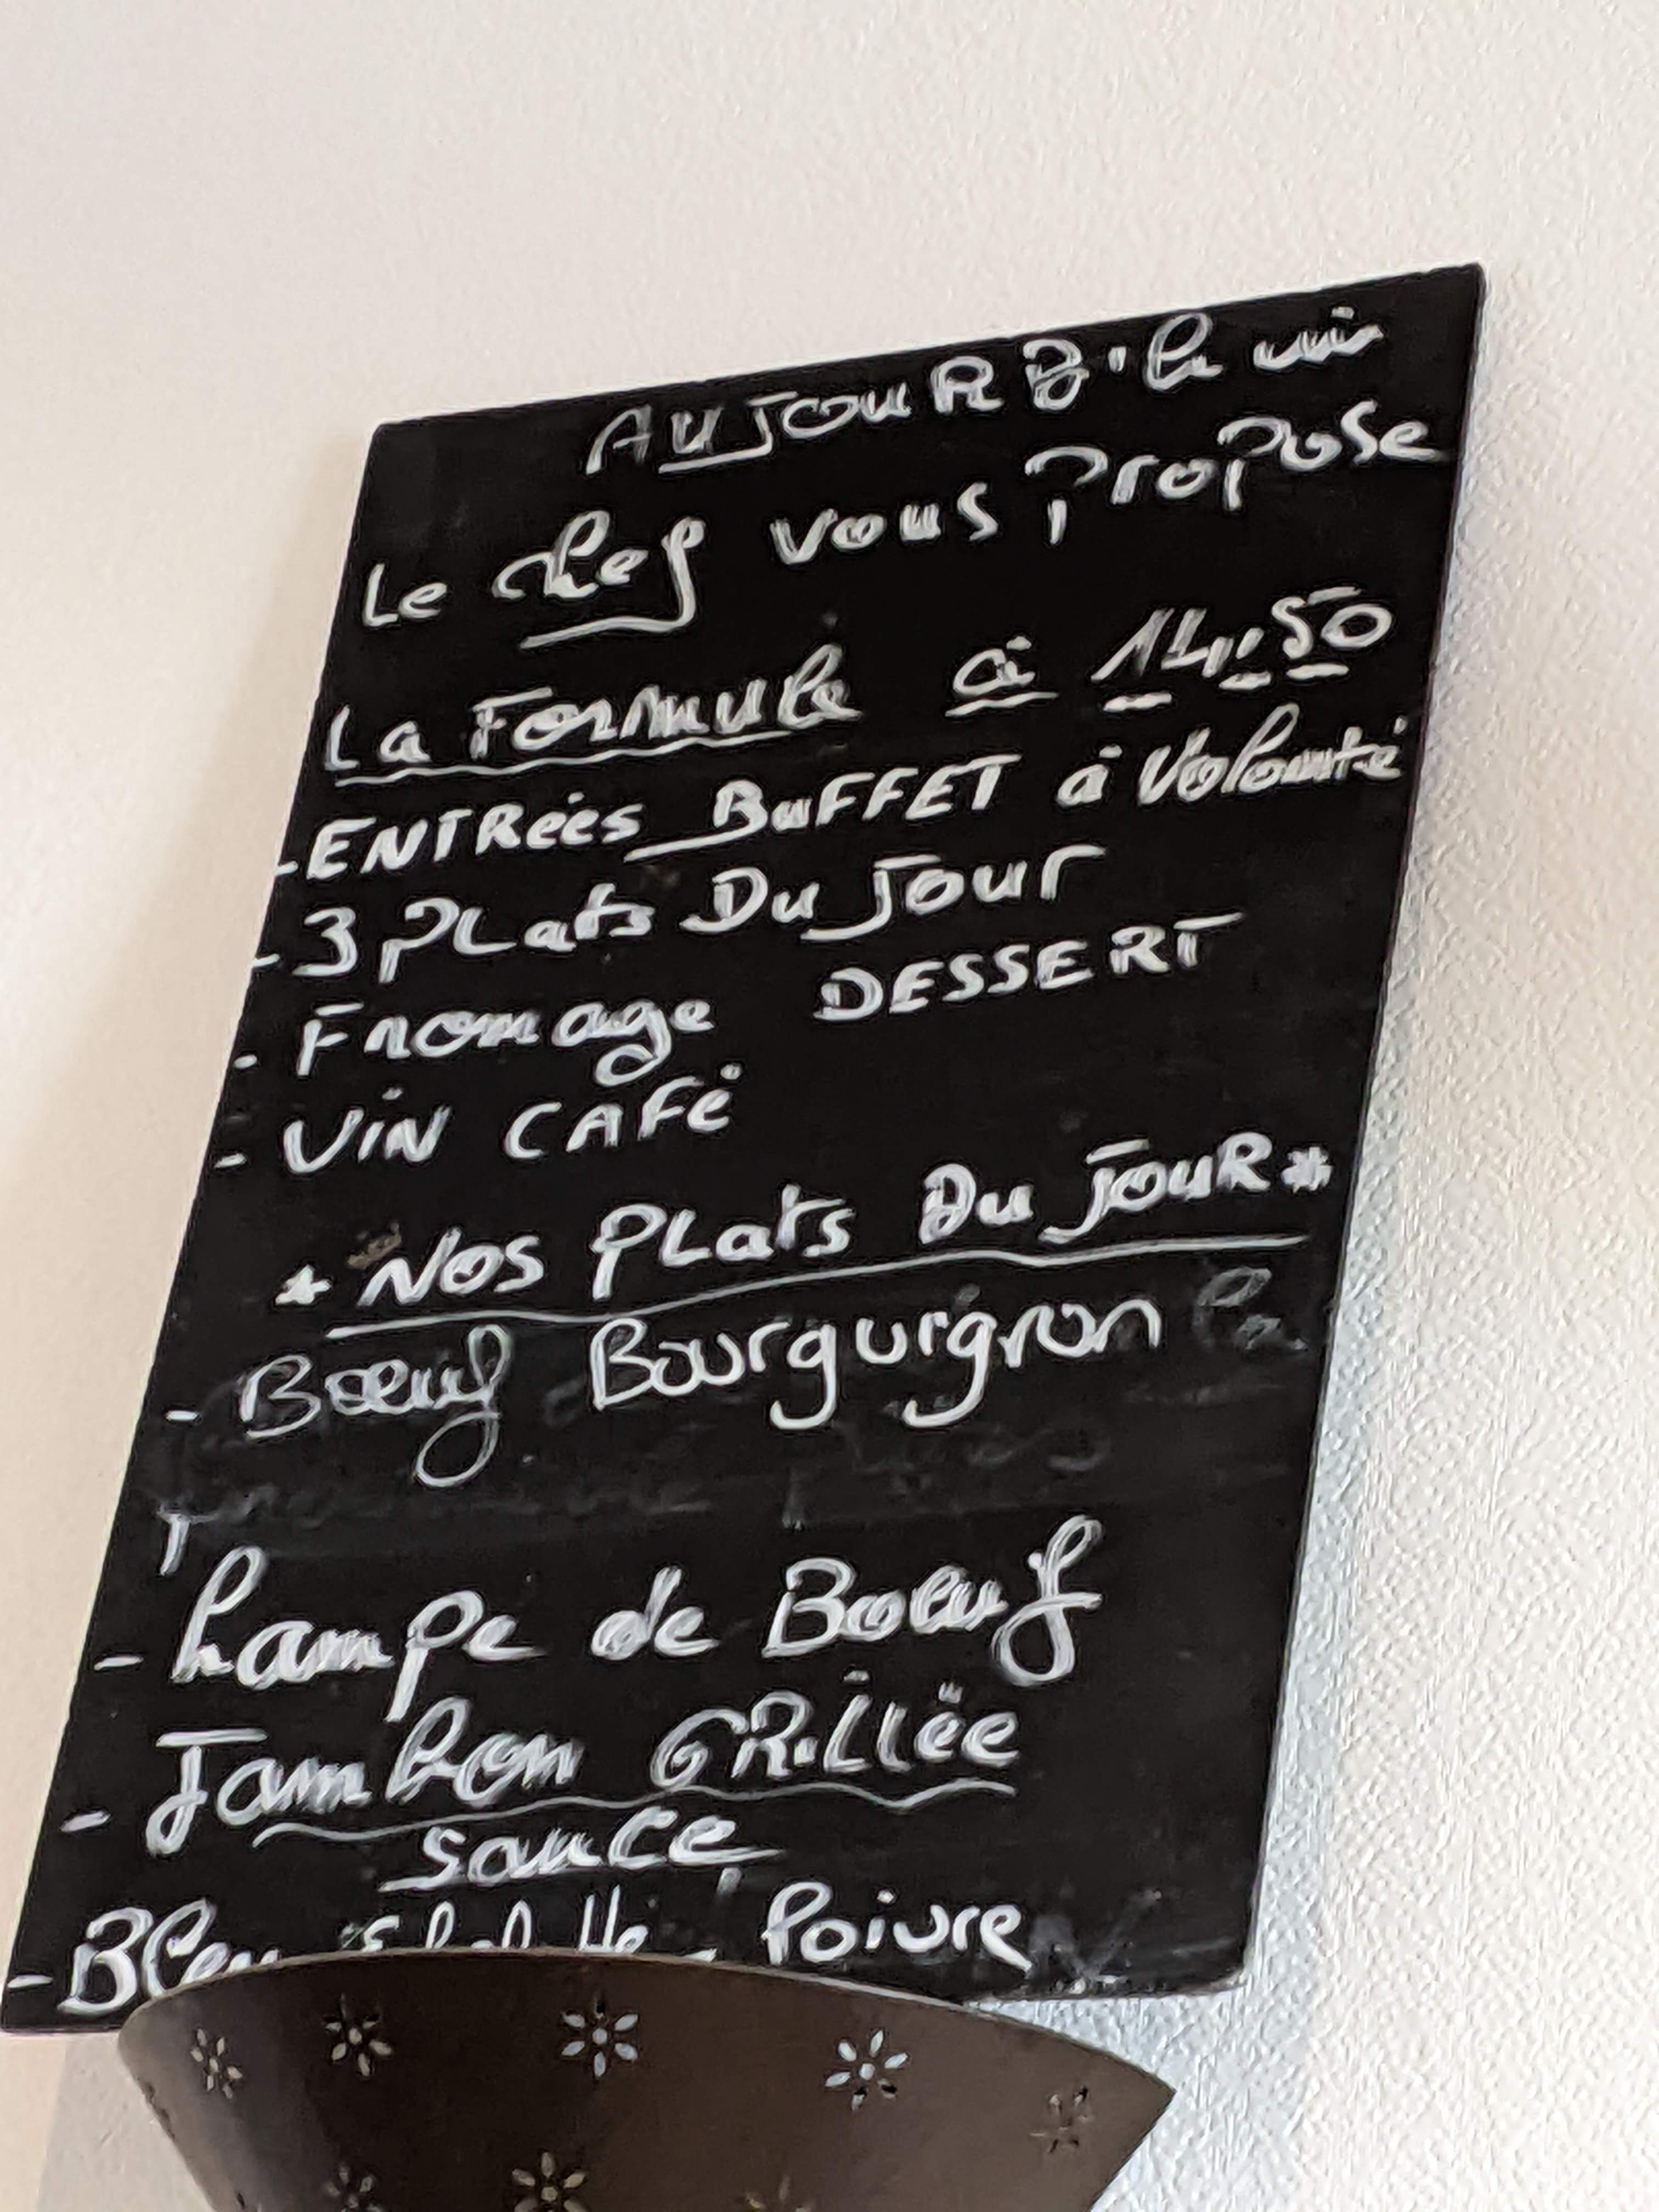 AUJOURD'hui
Le chef vous Propose
La Formule à 14,50
-ENTRéés BUFFET à Volonté
-3 PLats Du Jour
- Fromage DESSERT
- ViN CAFé
* Nos PLats Du JOUR *
- Bœuf Bourguignon
- hampe de Bœuf
- Jambon GRiLLée
sauce
- Bleu Poivre